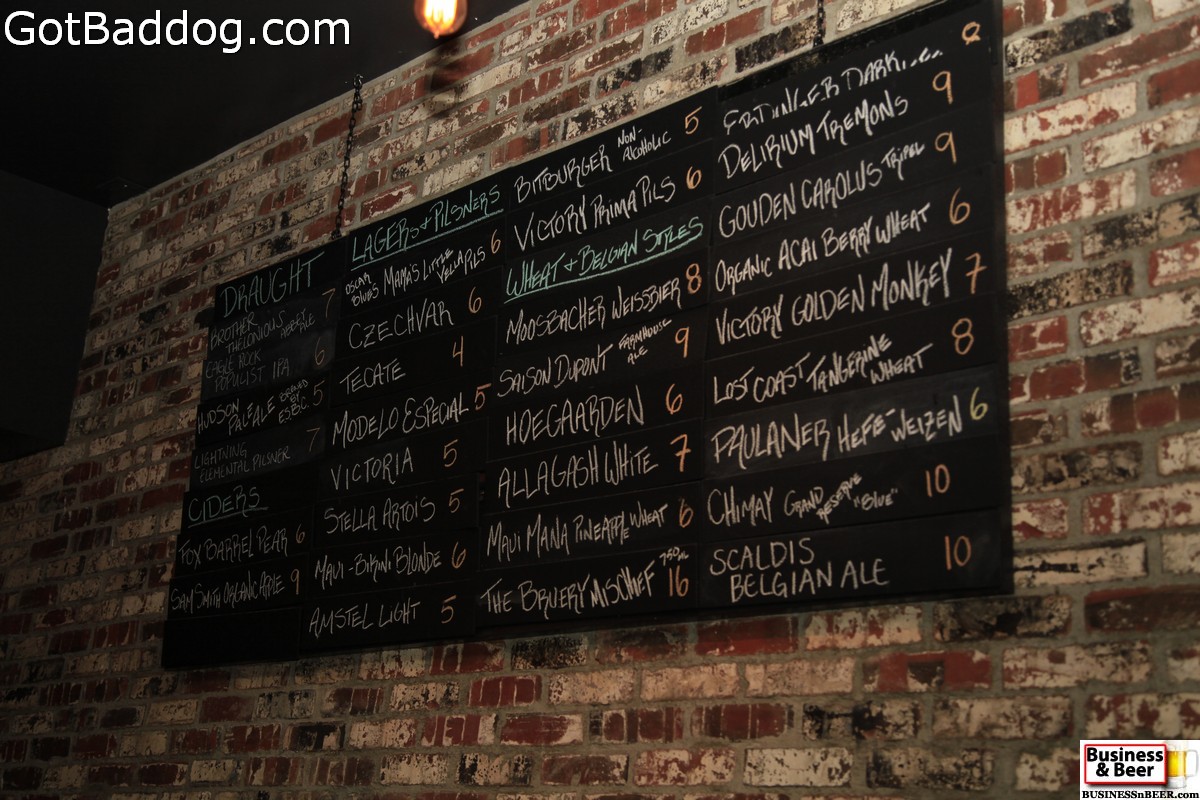 GotBaddog.com
DRAUGHT
BROTHER THELONIOUS 7
EAGLE ROCK POPULIST IPA 6
HUDSON PALE ALE 5
LIGHTNING ELEMENTAL PILSNER 7
CIDERS
FOX BARREL PEAR 6
SAM SMITH ORGANIC APPLE 9
LAGERS & PILSNERS
OSCAR BLUES MAMA'S LITTLE YELLA PILS 6
CZECHVAR 6
TECATE 4
MODELO ESPECIAL 5
VICTORIA 5
STELLA ARTOIS 5
MAUI - BIKINI BLONDE 6
AMSTEL LIGHT 5
BITBURGER NON-ALCOHOLIC 5
VICTORY PRIMA PILS 6
WHEAT & BELGIAN STYLES
MOOSBACHER WEISSBIER 8
SAISON DUPONT FARMHOUSE ALE 9
HOEGAARDEN 6
ALLAGASH WHITE 7
MAUI MANA PINEAPPLE WHEAT 6
THE BRUERY MISCHIEF 750ML 16
ERDINGER 8
DELIRIUM TREMONS 9
GOUDEN CAROLUS TRIPEL 9
ORGANIC ACAI BERRY WHEAT 6
VICTORY GOLDEN MONKEY 7
LOST COAST TANGERINE WHEAT 8
PAULANER HEFE-WEIZEN 6
CHIMAY GRAND RESERVE "BLUE" 10
SCALDIS BELGIAN ALE 10
Business & Beer
BUSINESSnBEER.com